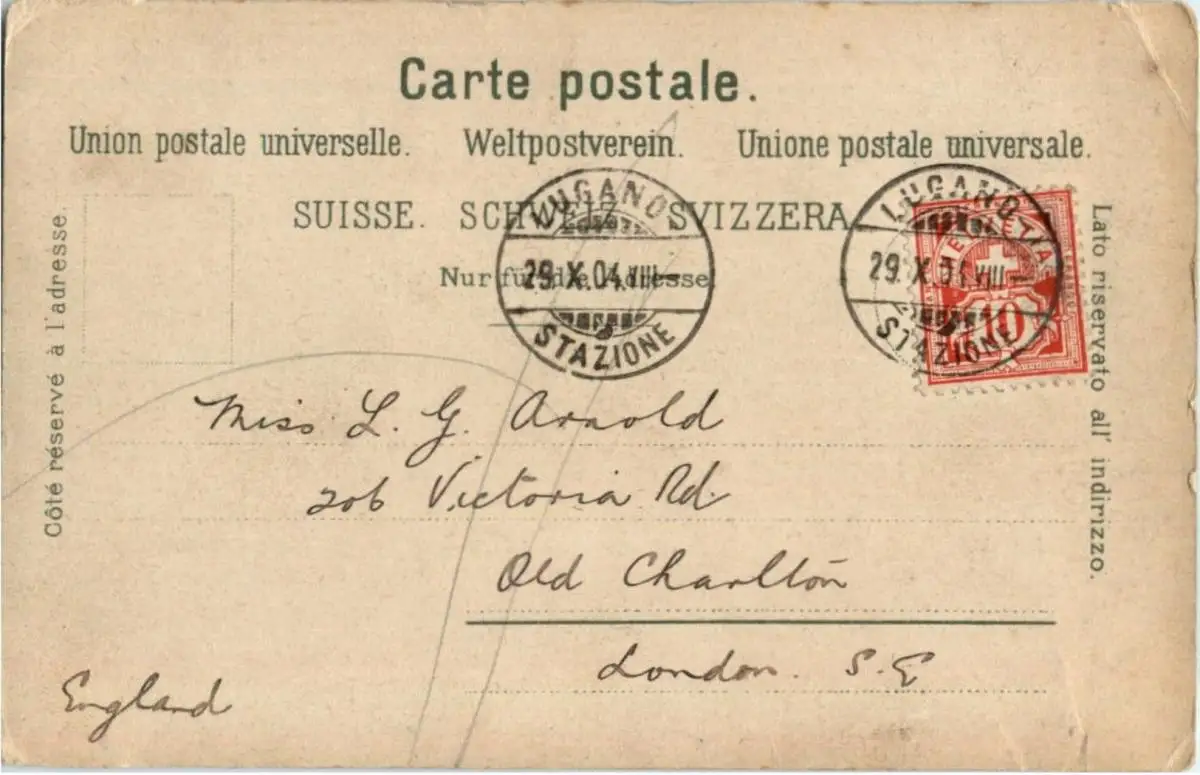 Carte postale.
Union postale universelle. Weltpostverein. Unione postale universale.
SUISSE. SCHWEIZ. SVIZZERA.
Nur für die Adresse.
Côté réservé à l'adresse.
Lato riservato all' indirizzo.
LUGANO
29.X.04.VIII-
STAZIONE
LUGANO
29.X.04.VIII-
STAZIONE
HELVETIA
10
Miss L. G. Arnold
206 Victoria Rd.
Old Charlton
London. S.E
England